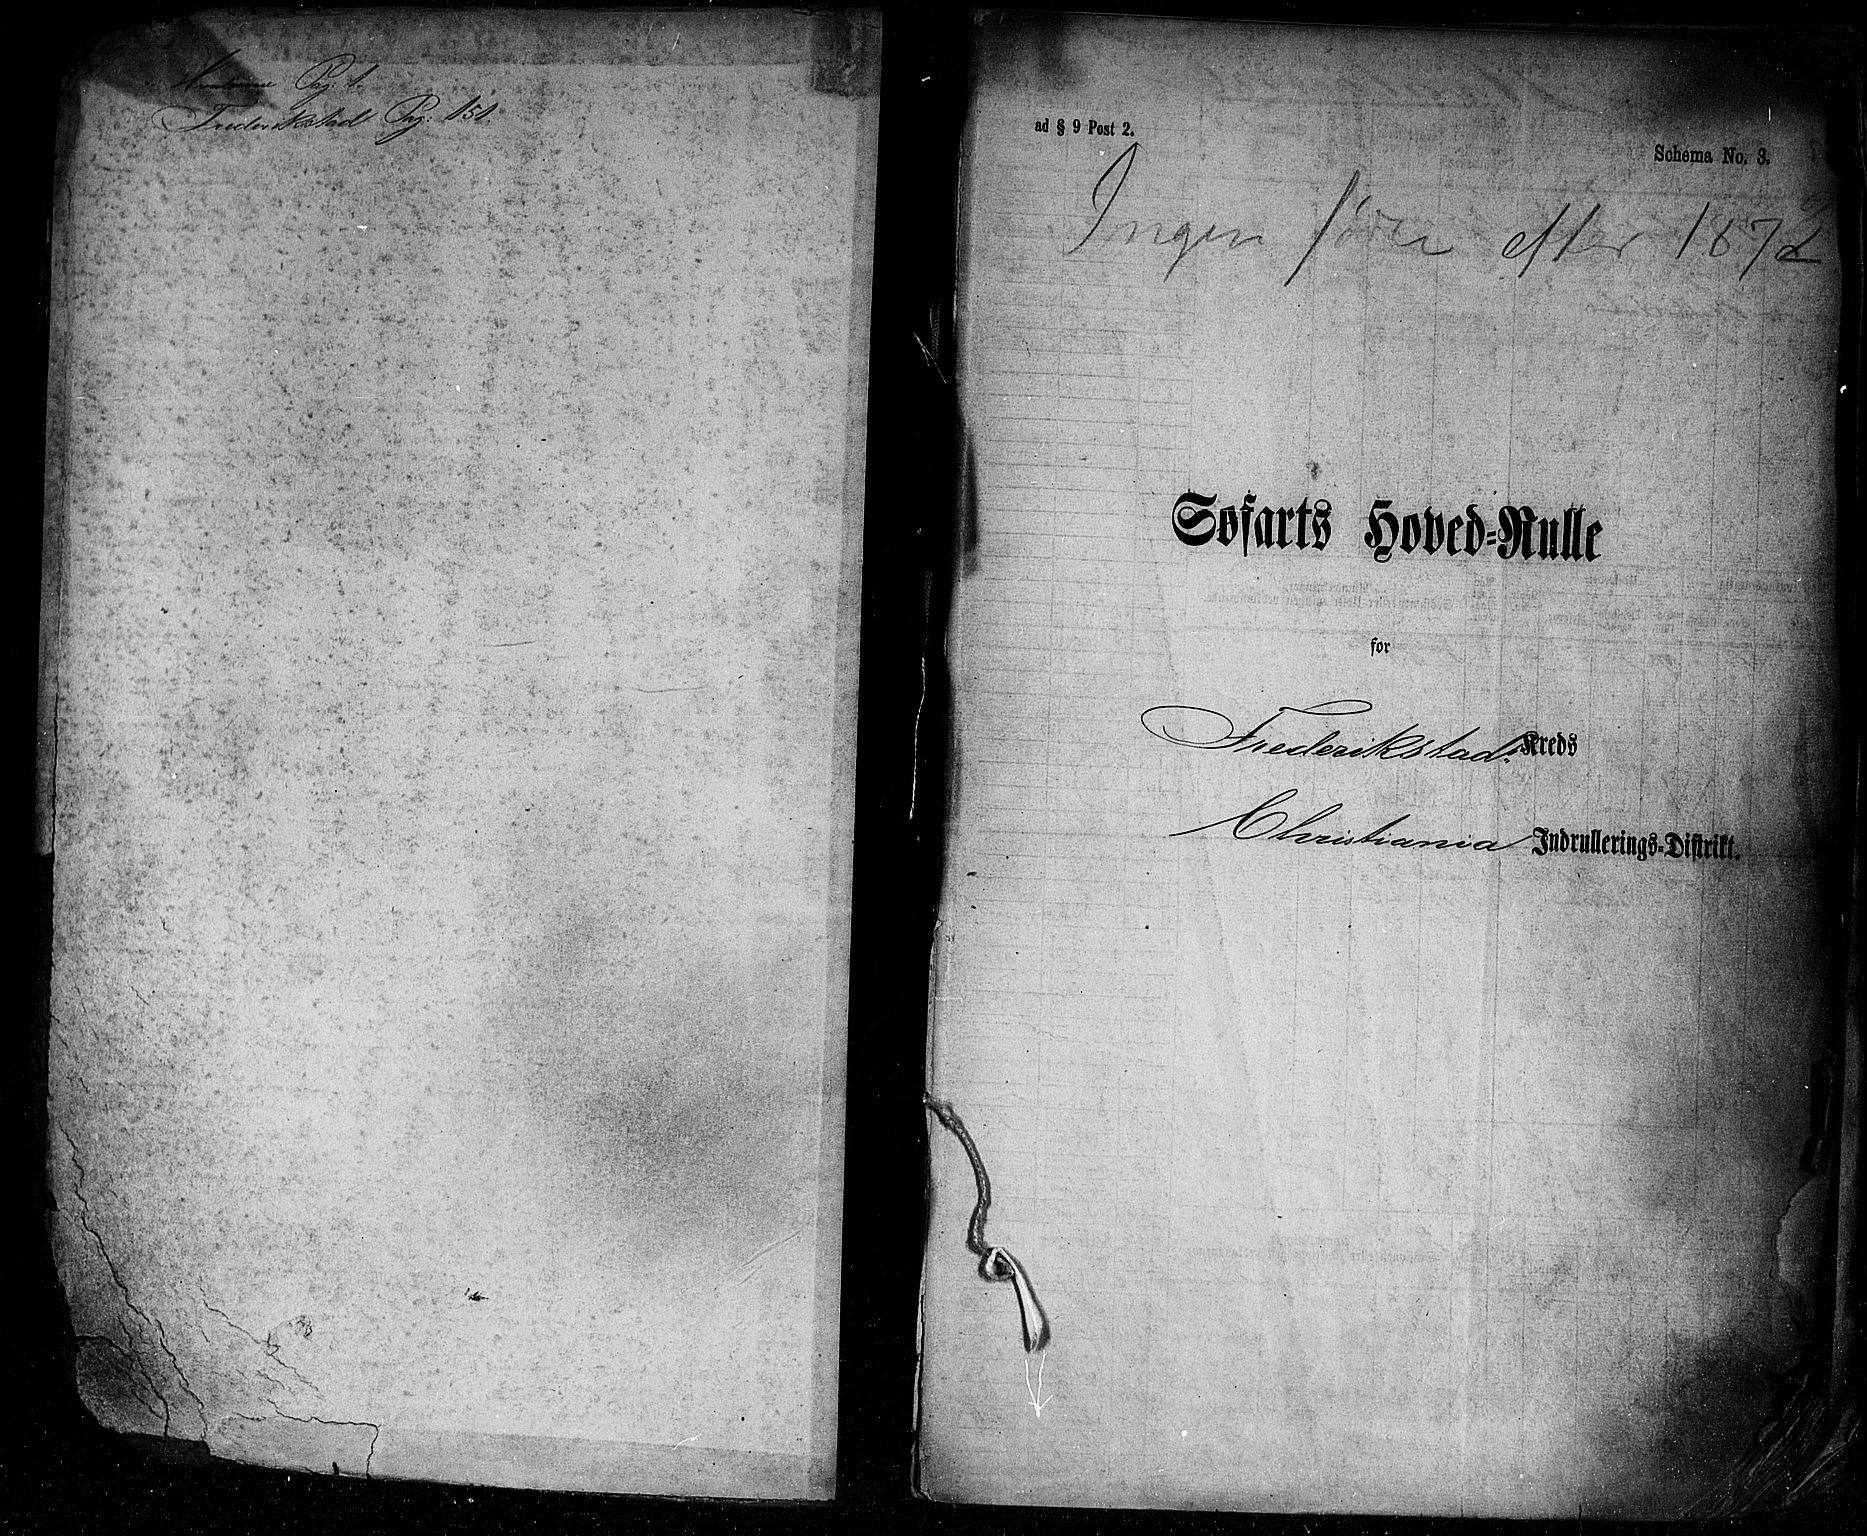 Hvaløerne Pag: 1.
Frederikstad Pag: 151.
ad § 9 Post 2.
Schema No. 3.
Ingen føres efter 1872
Søfarts Hoved-Rulle
for
Frederikstads Kreds
Christiania Indrullerings-Distrikt.